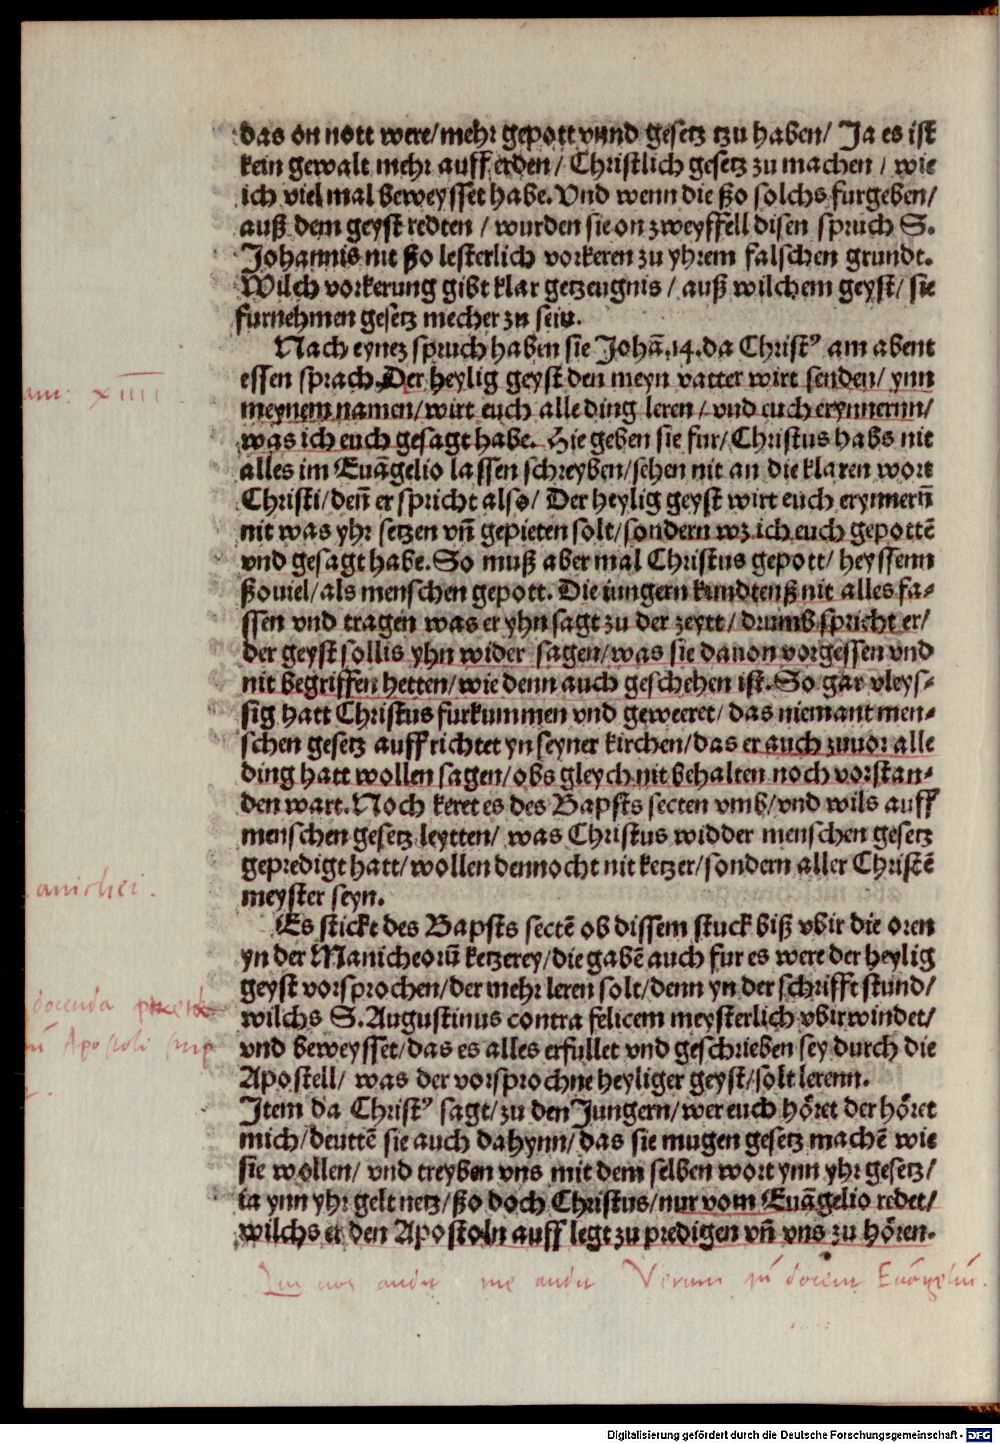 das on nott were/ mehr gepott vnnd gesetz tzu haben/ Ja es ist
kein gewalt mehr auff erden/ Christlich gesetz zu machen / wie
ich viel mal beweysset habe. Vnd wenn die ßo solchs furgeben/
auß dem geyst redten / wurden sie on zweyffell disen spruch S.
Johannis nit ßo lesterlich vorkeren zu yhrem falschen grundt.
Wilch vorkerung gibt klar getzeugnis / auß wilchem geyst/ sie
furnehmen gesetz mecher zu sein.
Nach eynez spruch haben sie Johā.14. da Christꝰ am abent
am: xiiii.
essen sprach Der heylig geyst den meyn vatter wirt senden/ ynn
meynem namen/ wirt euch alle ding leren / vnd euch erynnernn/
was ich euch gesagt habe. Hie geben sie fur/ Christus habs nit
alles im Euāgelio lassen schreyben/ sehen nit an die klaren wort
Christi/ deñ er spricht also/ Der heylig geyst wirt euch erynnerñ
nit was yhr setzen vñ gepieten solt/ sondern wz ich euch gepottē
vnd gesagt habe. So muß aber mal Christus gepott/ heyssenn
ßouiel/ als menschen gepott. Die iungern kundtenß nit alles fa-
ssen vnd tragen was er yhn sagt zu der zeytt/ drumb spricht er/
der geyst sollis yhn wider sagen/ was sie dauon vorgessen vnd
nit begriffen hetten/ wie denn auch geschehen ist. So gar vleys-
sig hatt Christus furkummen vnd geweeret/ das niemant men-
schen gesetz auff richtet yn seyner kirchen/ das er auch zuuor alle
ding hatt wollen sagen/ obs gleych nit behalten noch vorstan-
den wart. Noch keret es des Bapsts secten vmb/ vnd wils auff
menschen gesetz leytten/ was Christus widder menschen gesetz
gepredigt hatt/ wollen dennocht nit ketzer/ sondern aller Christē
anichei.
meyster seyn.
Es stickt des Bapsts sectē ob dissem stuck biß vbir die oren
yn der Manicheorū ketzerey/ die gabē auch fur es were der heylig
geyst vorsprochen/ der mehr leren solt/ denn yn der schrifft stund/
docenda
wilchs S. Augustinus contra felicem meysterlich vbirwindet/
Apostoli
vnd beweysset/ das es alles erfullet vnd geschrieben sey durch die
Apostell/ was der vorsprochne heyliger geyst/ solt lerenn.
Item da Christꝰ sagt/ zu den Jungern/ wer euch höret der höret
mich/ deuttē sie auch dahynn/ das sie mugen gesetz machē wie
sie wollen/ vnd treyben vns mit dem selben wort ynn yhr gesetz/
ia ynn yhr gelt netz/ ßo doch Christus/ nur vom Euāgelio redet/
wilchs er den Apostoln auff legt zu predigen vñ vns zu hören.
Qui vos audit me audit Verum docent Euāgeliū.
Digitalisierung gefördert durch die Deutsche Forschungsgemeinschaft - DFG